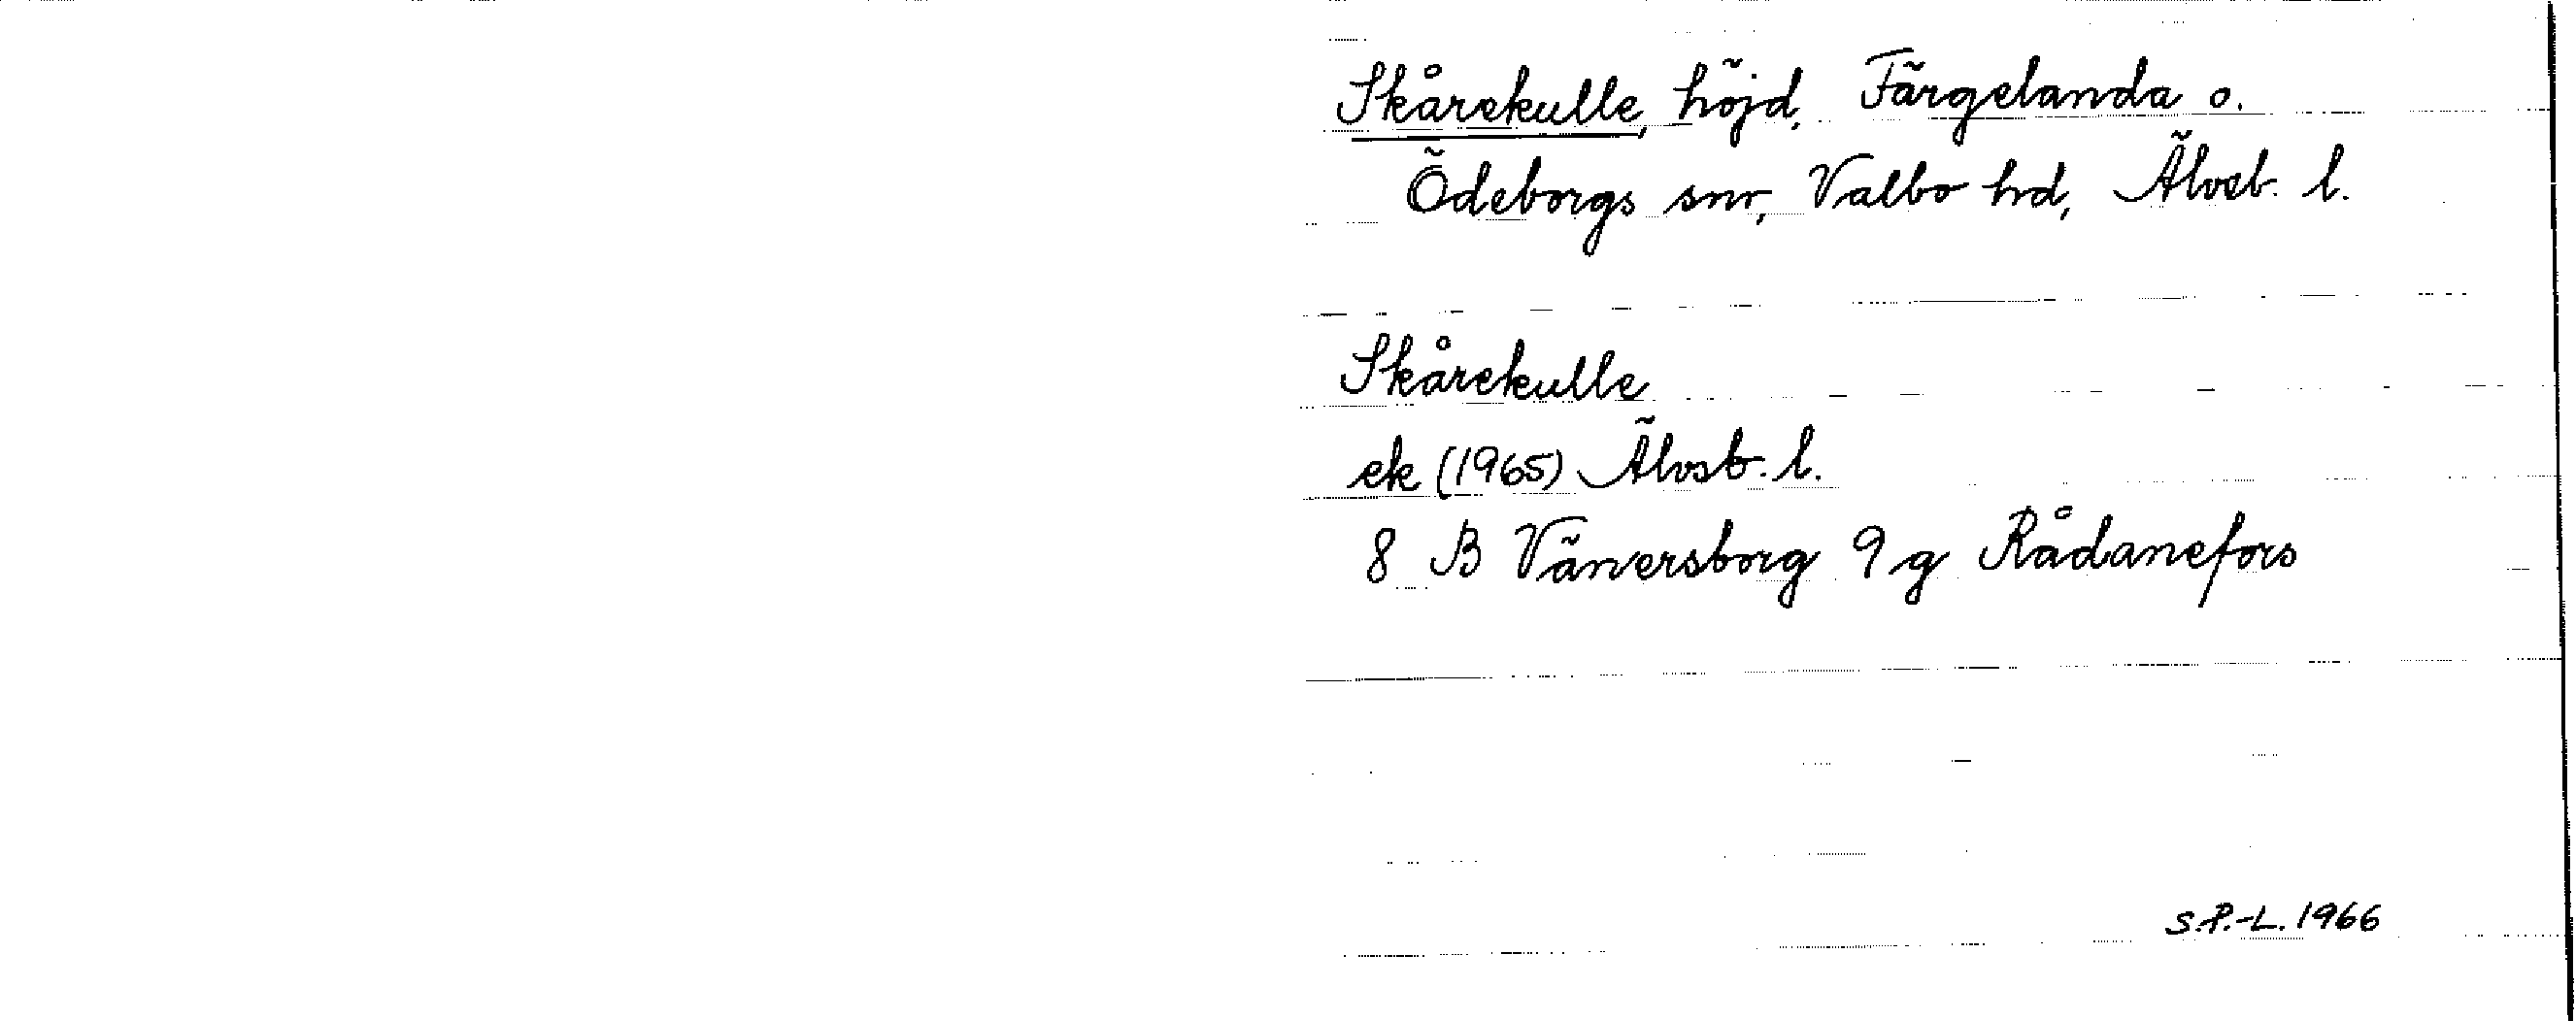 Skårekulle, höjd, Färgelanda o.
Ödeborgs snr, Valbo hd, Älvsb. l.
Skårekulle
ek (1965) Älvsb. l.
8 B Vänersborg 9 g Rådanefors
S.P.-L. 1966